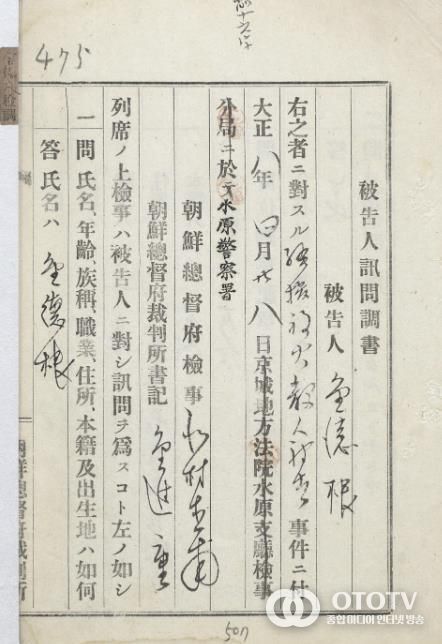 475
被告人訊問調書
被告人 金德根
右之者ニ對スル騷擾放火殺人 事件ニ付
大正八年四月廿八日京城地方法院水原支廳檢事
分局ニ於テ水原警察署
朝鮮總督府檢事
朝鮮總督府裁判所書記
列席ノ上檢事ハ被告人ニ對シ訊問ヲ爲スコト左ノ如シ
一問 氏名、年齡、族稱、職業、住所、本籍及出生地ハ如何
答 氏名ハ 金德根
朝鮮總督府裁判所
507
OTOTV
종합 미디어 인터넷 방송